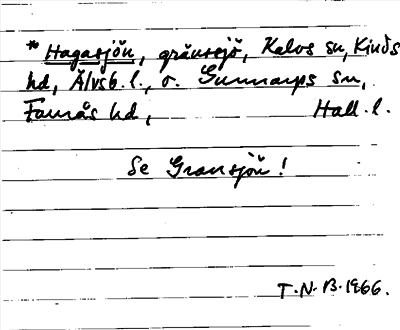 * Hagasjön, gränssjö, Kalvs sn, Kinds
hd, Älvsb. l., o. Gunnarps sn,
Faurås hd, Hall. l.
Se Gransjön!
T. N. B. 1966.